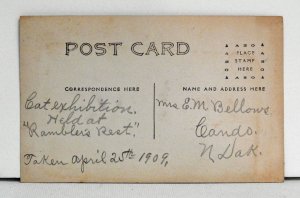 POST CARD
AZO
PLACE
STAMP
HERE
AZO
CORRESPONDENCE HERE
NAME AND ADDRESS HERE
Cat exhibition.
Held at
"Rambler's Rest."
Taken April 25th 1909.
Mrs E.M. Bellows
Cando.
N Dak.